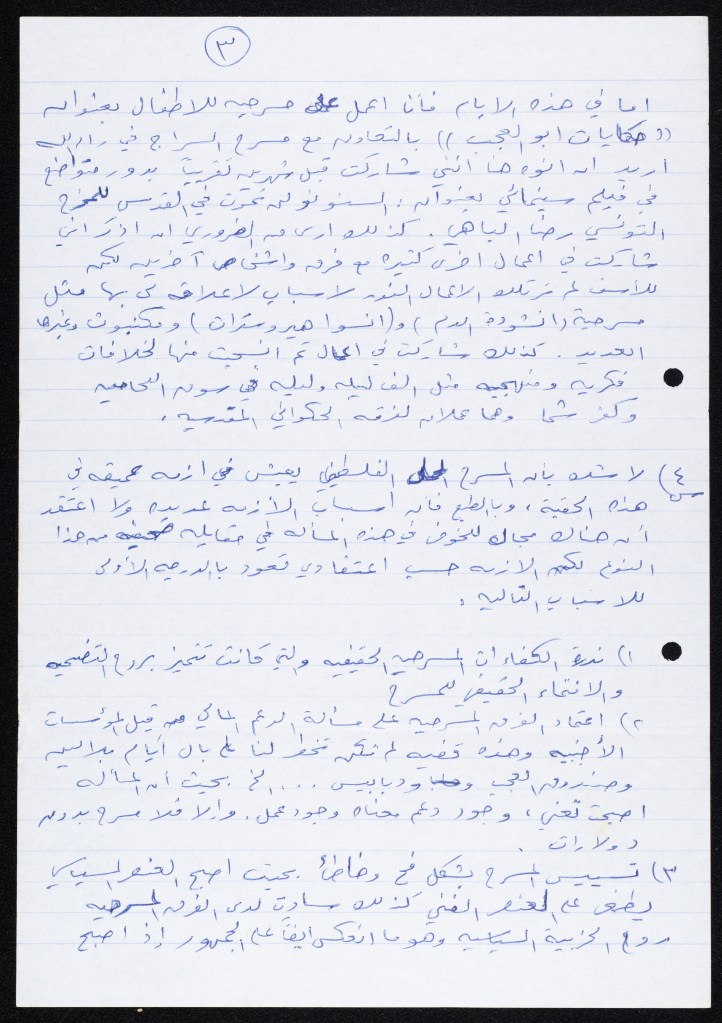 ٣
اما في هذه الايام فأنا اعمل على مسرحيه للاطفال بعنوان
((حكايات ابو العجب)) بالتعاون مع مسرح السراج في رام الله
اريد ان انوه هنا انني شاركت قبل شهرين تقريباً بدور متواضع
في فيلم سينمائي بعنوان: السنونو لا تموت في القدس للمخرج
التونسي رضا الباهي. كذلك ارى من الضروري ان اذكر اني
شاركت في اعمال اخرى كثيره مع فرق واشخاص آخرين لكن
للأسف لم تر تلك الاعمال النور لاسباب لا علاقه لي بها مثل
مسرحية (انشودة الدم) و(انسوا هيروسترات) ومكتبوت وغيرها
العديد. كذلك شاركت في اعمال ثم انسحبت منها لخلافات
فكريه ومنهجيه مثل الف ليله وليله في سوق اللحامين
وكفر شما وهما عملان لفرقه الحكواتي المقدسيه.
س٤) لا شك بأن المسرح الفلسطيني يعيش في ازمه عميقه في
هذه الحقبة، وبالطبع فان اسباب الأزمه عديده ولا اعتقد
أن هناك مجال للخوض في هذه المسأله في مقابله صحفيه من هذا
النوع لكن الازمه حسب اعتقادي تعود بالدرجه الأولى
للاسباب التاليه:
١) ندرة الكفاءات المسرحيه الحقيقيه والتي كانت تتميز بروح التضحيه
والانتماء الحقيقي للمسرح
٢) اعتماد الفرق المسرحيه على مسألة الدعم المالي من قبل المؤسسات
الأجنبيه وهذه قضيه لم تكن تخطر لنا على بال أيام بلالين
وصندوق العجب ودبابيس .... الخ بحيث ان المسأله
اصبحت تعني، وجود دعم معناه وجود عمل. وإلا فلا مسرح بدون
دولارات.
٣) تسييس المسرح بشكل فج وخاطئ بحيث اصبح العنصر السياسي
يطغى على العنصر الفني كذلك سادت لدى الفرق المسرحيه
روح الحزبية السياسيه وهو ما انعكس ايضاً على الجمهور إذ اصبح